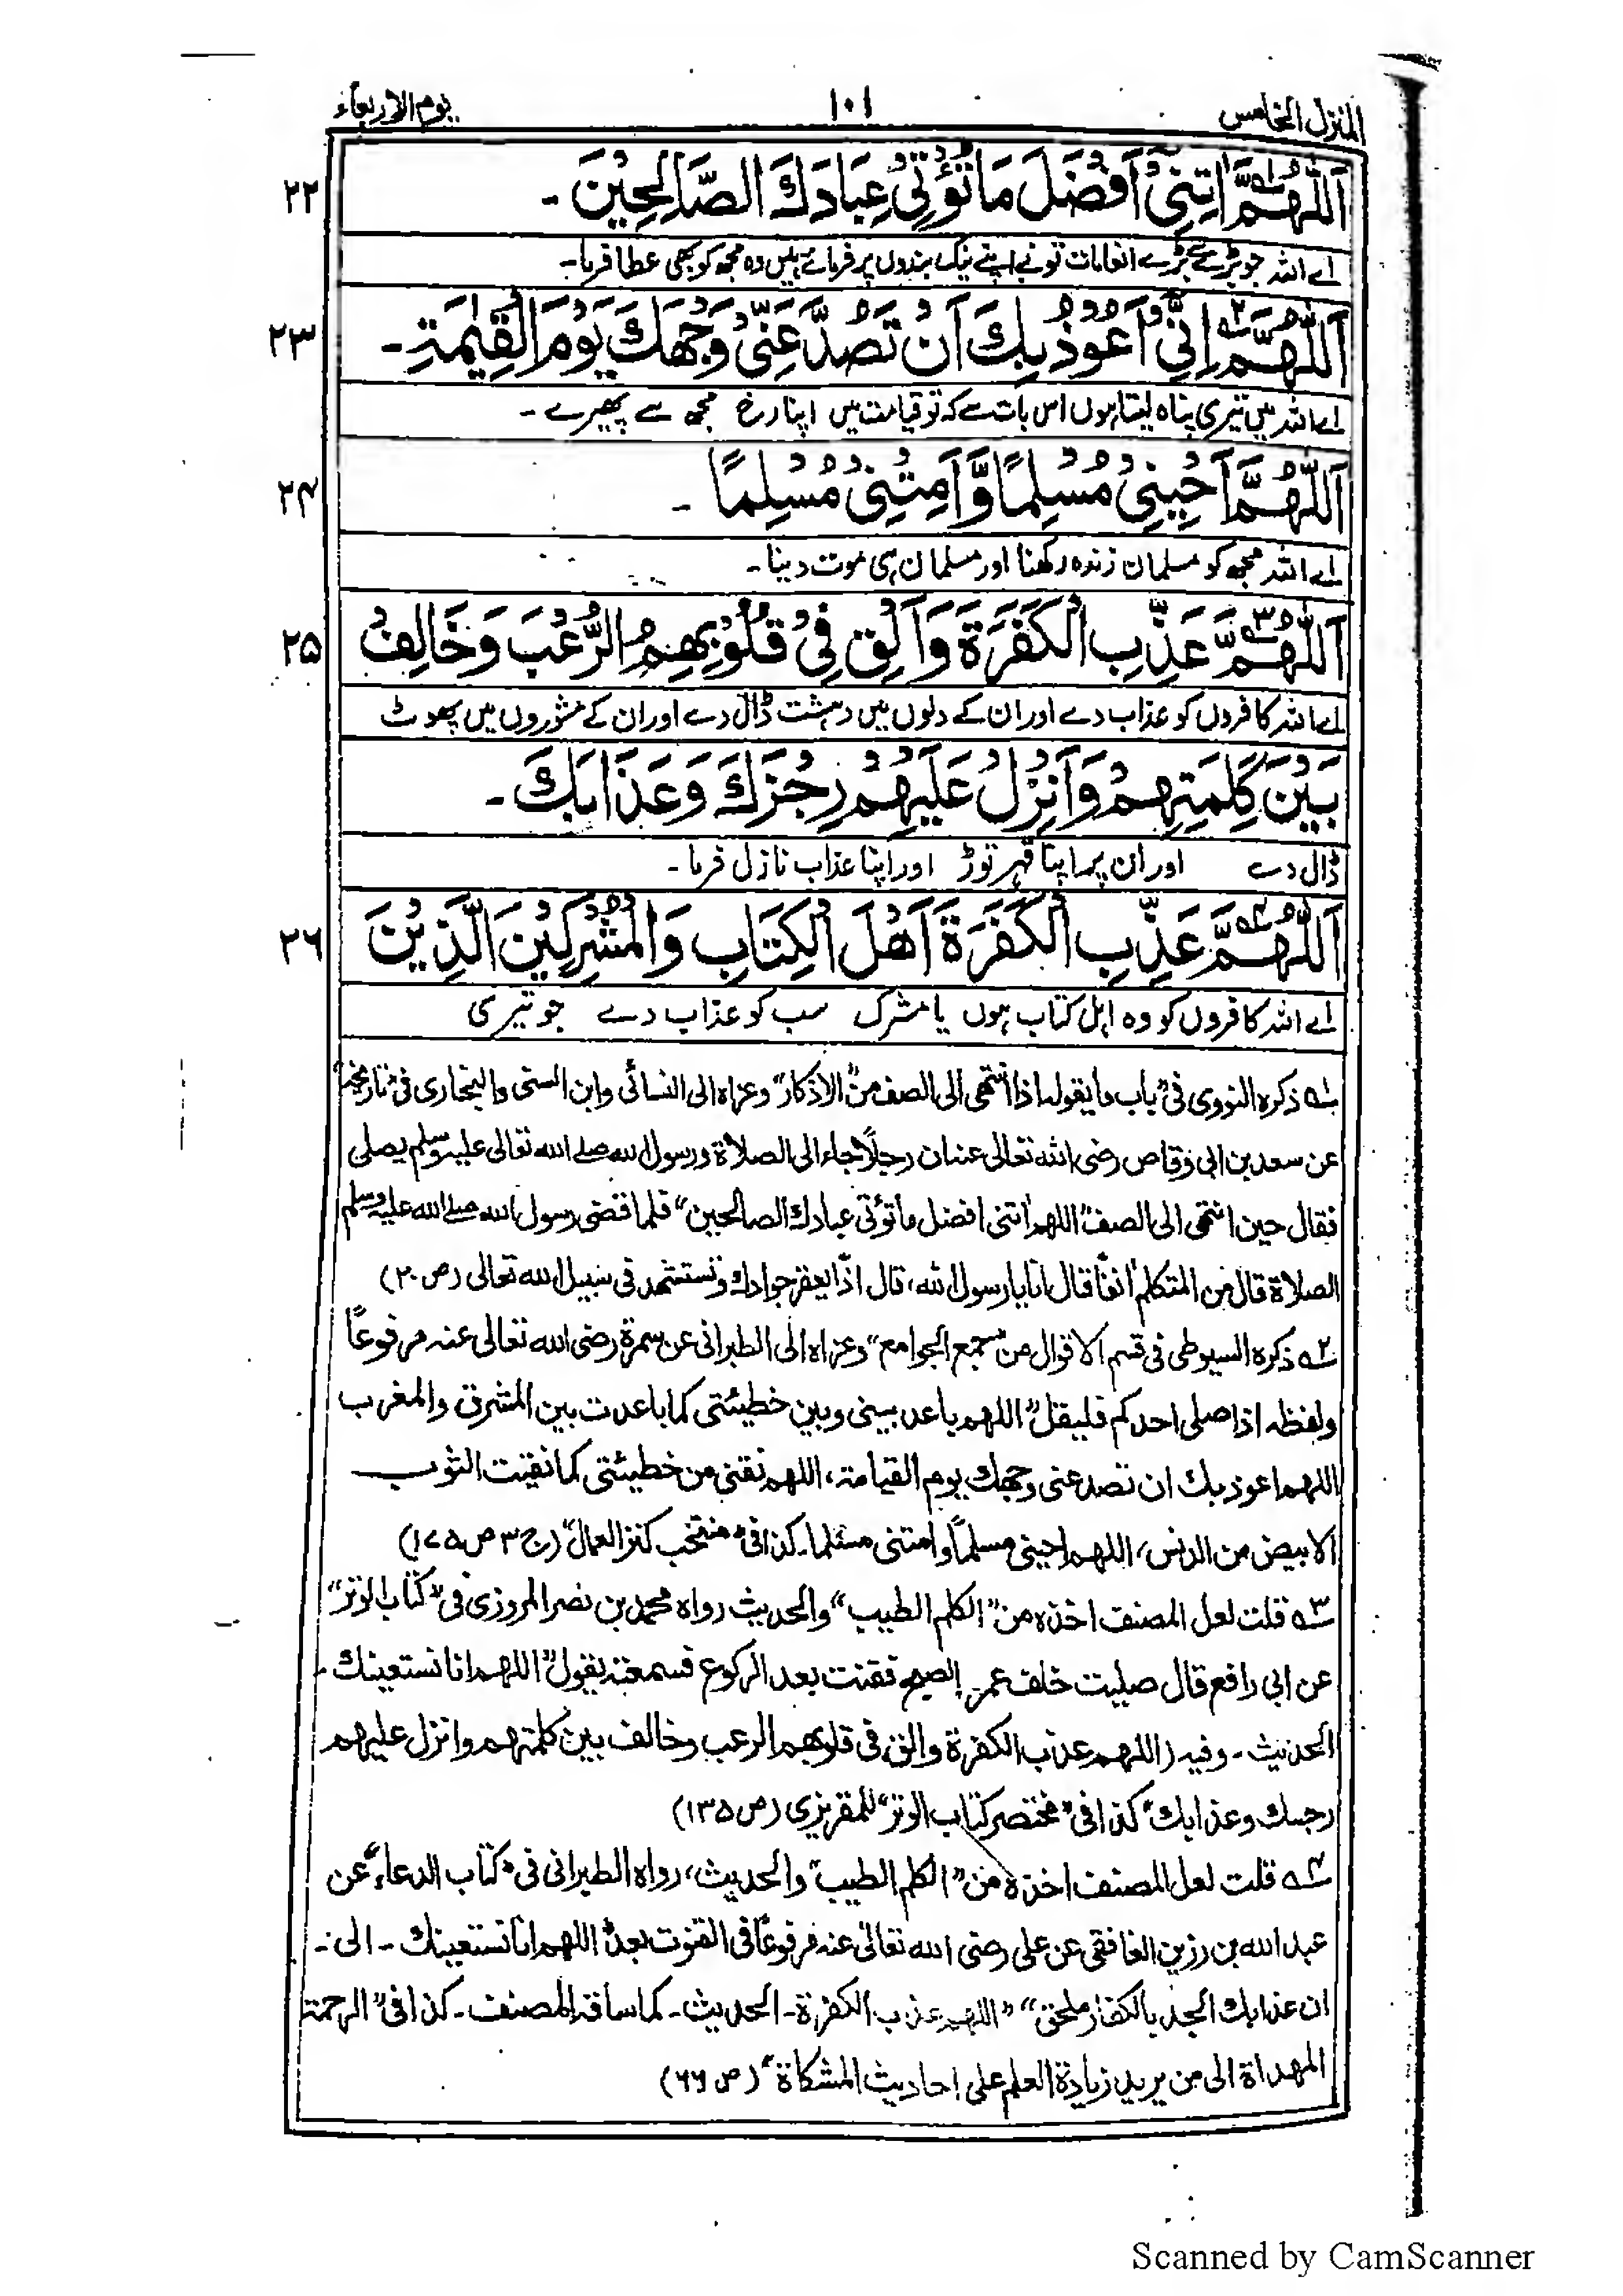 المنزل الخامس ١٠١ يوم الاربعاء
٢٢ اَللّٰهُمَّ اٰتِنِيْ اَفْضَلَ مَا تُؤْتِيْ عِبَادَكَ الصَّالِحِيْنَ ۔
اے اللہ جو بڑے سے بڑے انعامات تونے اپنے نیک بندوں پر فرمائے ہیں وہ مجھ کو بھی عطا فرما۔
٢٣ اَللّٰهُمَّ اِنِّيْ اَعُوْذُ بِكَ اَنْ تَصُدَّ عَنِّيْ وَجْهَكَ يَوْمَ الْقِيٰمَةِ ۔
اے اللہ میں تیری پناہ لیتا ہوں اس بات سے کہ تو قیامت میں اپنا رخ مجھ سے پھیرے ۔
٢٤ اَللّٰهُمَّ اَحْيِنِيْ مُسْلِمًا وَّاَمِتْنِيْ مُسْلِمًا ۔
اے اللہ مجھ کو مسلمان زندہ رکھنا اور مسلمان ہی موت دینا۔
٢٥ اَللّٰهُمَّ عَذِّبِ الْكَفَرَةَ وَاَلْقِ فِيْ قُلُوْبِهِمُ الرُّعْبَ وَخَالِفْ
اے اللہ کافروں کو عذاب دے اور ان کے دلوں میں دہشت ڈال دے اور ان کے مشوروں میں پھوٹ
بَيْنَ كَلِمَتِهِمْ وَاَنْزِلْ عَلَيْهِمْ رِجْزَكَ وَعَذَابَكَ ۔
ڈال دے اور ان پر اپنا قہر توڑ اور اپنا عذاب نازل فرما ۔
٢٦ اَللّٰهُمَّ عَذِّبِ الْكَفَرَةَ اَهْلَ الْكِتَابِ وَالْمُشْرِكِيْنَ الَّذِيْنَ
اے اللہ کافروں کو وہ اہل کتاب ہوں یا مشرک سب کو عذاب دے جو تیری
١ ذكره النووي في "باب ما يقوله اذا انتهى الى الصف من" الاذكار" وعزاه الى النسائي وابن السني والبخاري في تاريخه
عن سعد بن ابي وقاص رضي الله تعالى عنه ان رجلًا جاء الى الصلاة ورسول الله صلى الله تعالى عليه وسلم يصلي
فقال حين انتهى الى الصف" اللهم اٰتني افضل ما تؤتي عبادك الصالحين" فلما قضى رسول الله صلى الله عليه وسلم
الصلاة قال من المتكلم اٰنفًا قال انا يا رسول الله، قال اذًا يعقر جوادك وتستشهد في سبيل الله تعالى (ص ٢٠)
٢ ذكره السيوطي في قسم الاقوال من "جمع الجوامع" وعزاه الى الطبراني عن سمرة رضي الله تعالى عنه مرفوعًا
ولفظه اذا صلى احدكم فليقل" اللهم باعد بيني وبين خطيئتي كما باعدت بين المشرق والمغرب
اللهم اعوذ بك ان تصد عني وجهك يوم القيامة، اللهم نقني من خطيئتي كما نقيت الثوب
الابيض من الدنس، اللهم احيني مسلمًا وامتني مسلما۔ كذا في "منتخب كنز العمال" (ج ٣ ص ١٧٥)
٣ قلت لعل المصنف اخذه من "الكلم الطيب" والحديث رواه محمد بن نصر المروزي في "كتاب الوتر"
عن ابي رافع قال صليت خلف عمر الصبح فقنت بعد الركوع فسمعته يقول" اللهم انا نستعينك ۔
الحديث ۔ وفيه (اللهم عذب الكفرة والق في قلوبهم الرعب وخالف بين كلمتهم وانزل عليهم
رجسك وعذابك" كذا في "مختصر كتاب الوتر" للمقريزي (ص ١٣٥)
٤ قلت لعل المصنف اخذه من "الكلم الطيب" والحديث، رواه الطبراني في "كتاب الدعاء" عن
عبد الله بن رزين الغافقي عن علي رضي الله تعالى عنه مرفوعًا في القنوت بعد" اللهم انا نستعينك ۔ الى ۔
ان عذابك الجد بالكفار ملحق" "اللهم عذب الكفرة ۔ الحديث ۔ كما ساقه المصنف ۔ كذا في "الرحمة
المهداة الى من يريد زيادة العلم على احاديث المشكاة" (ص ٦٦)
Scanned by CamScanner